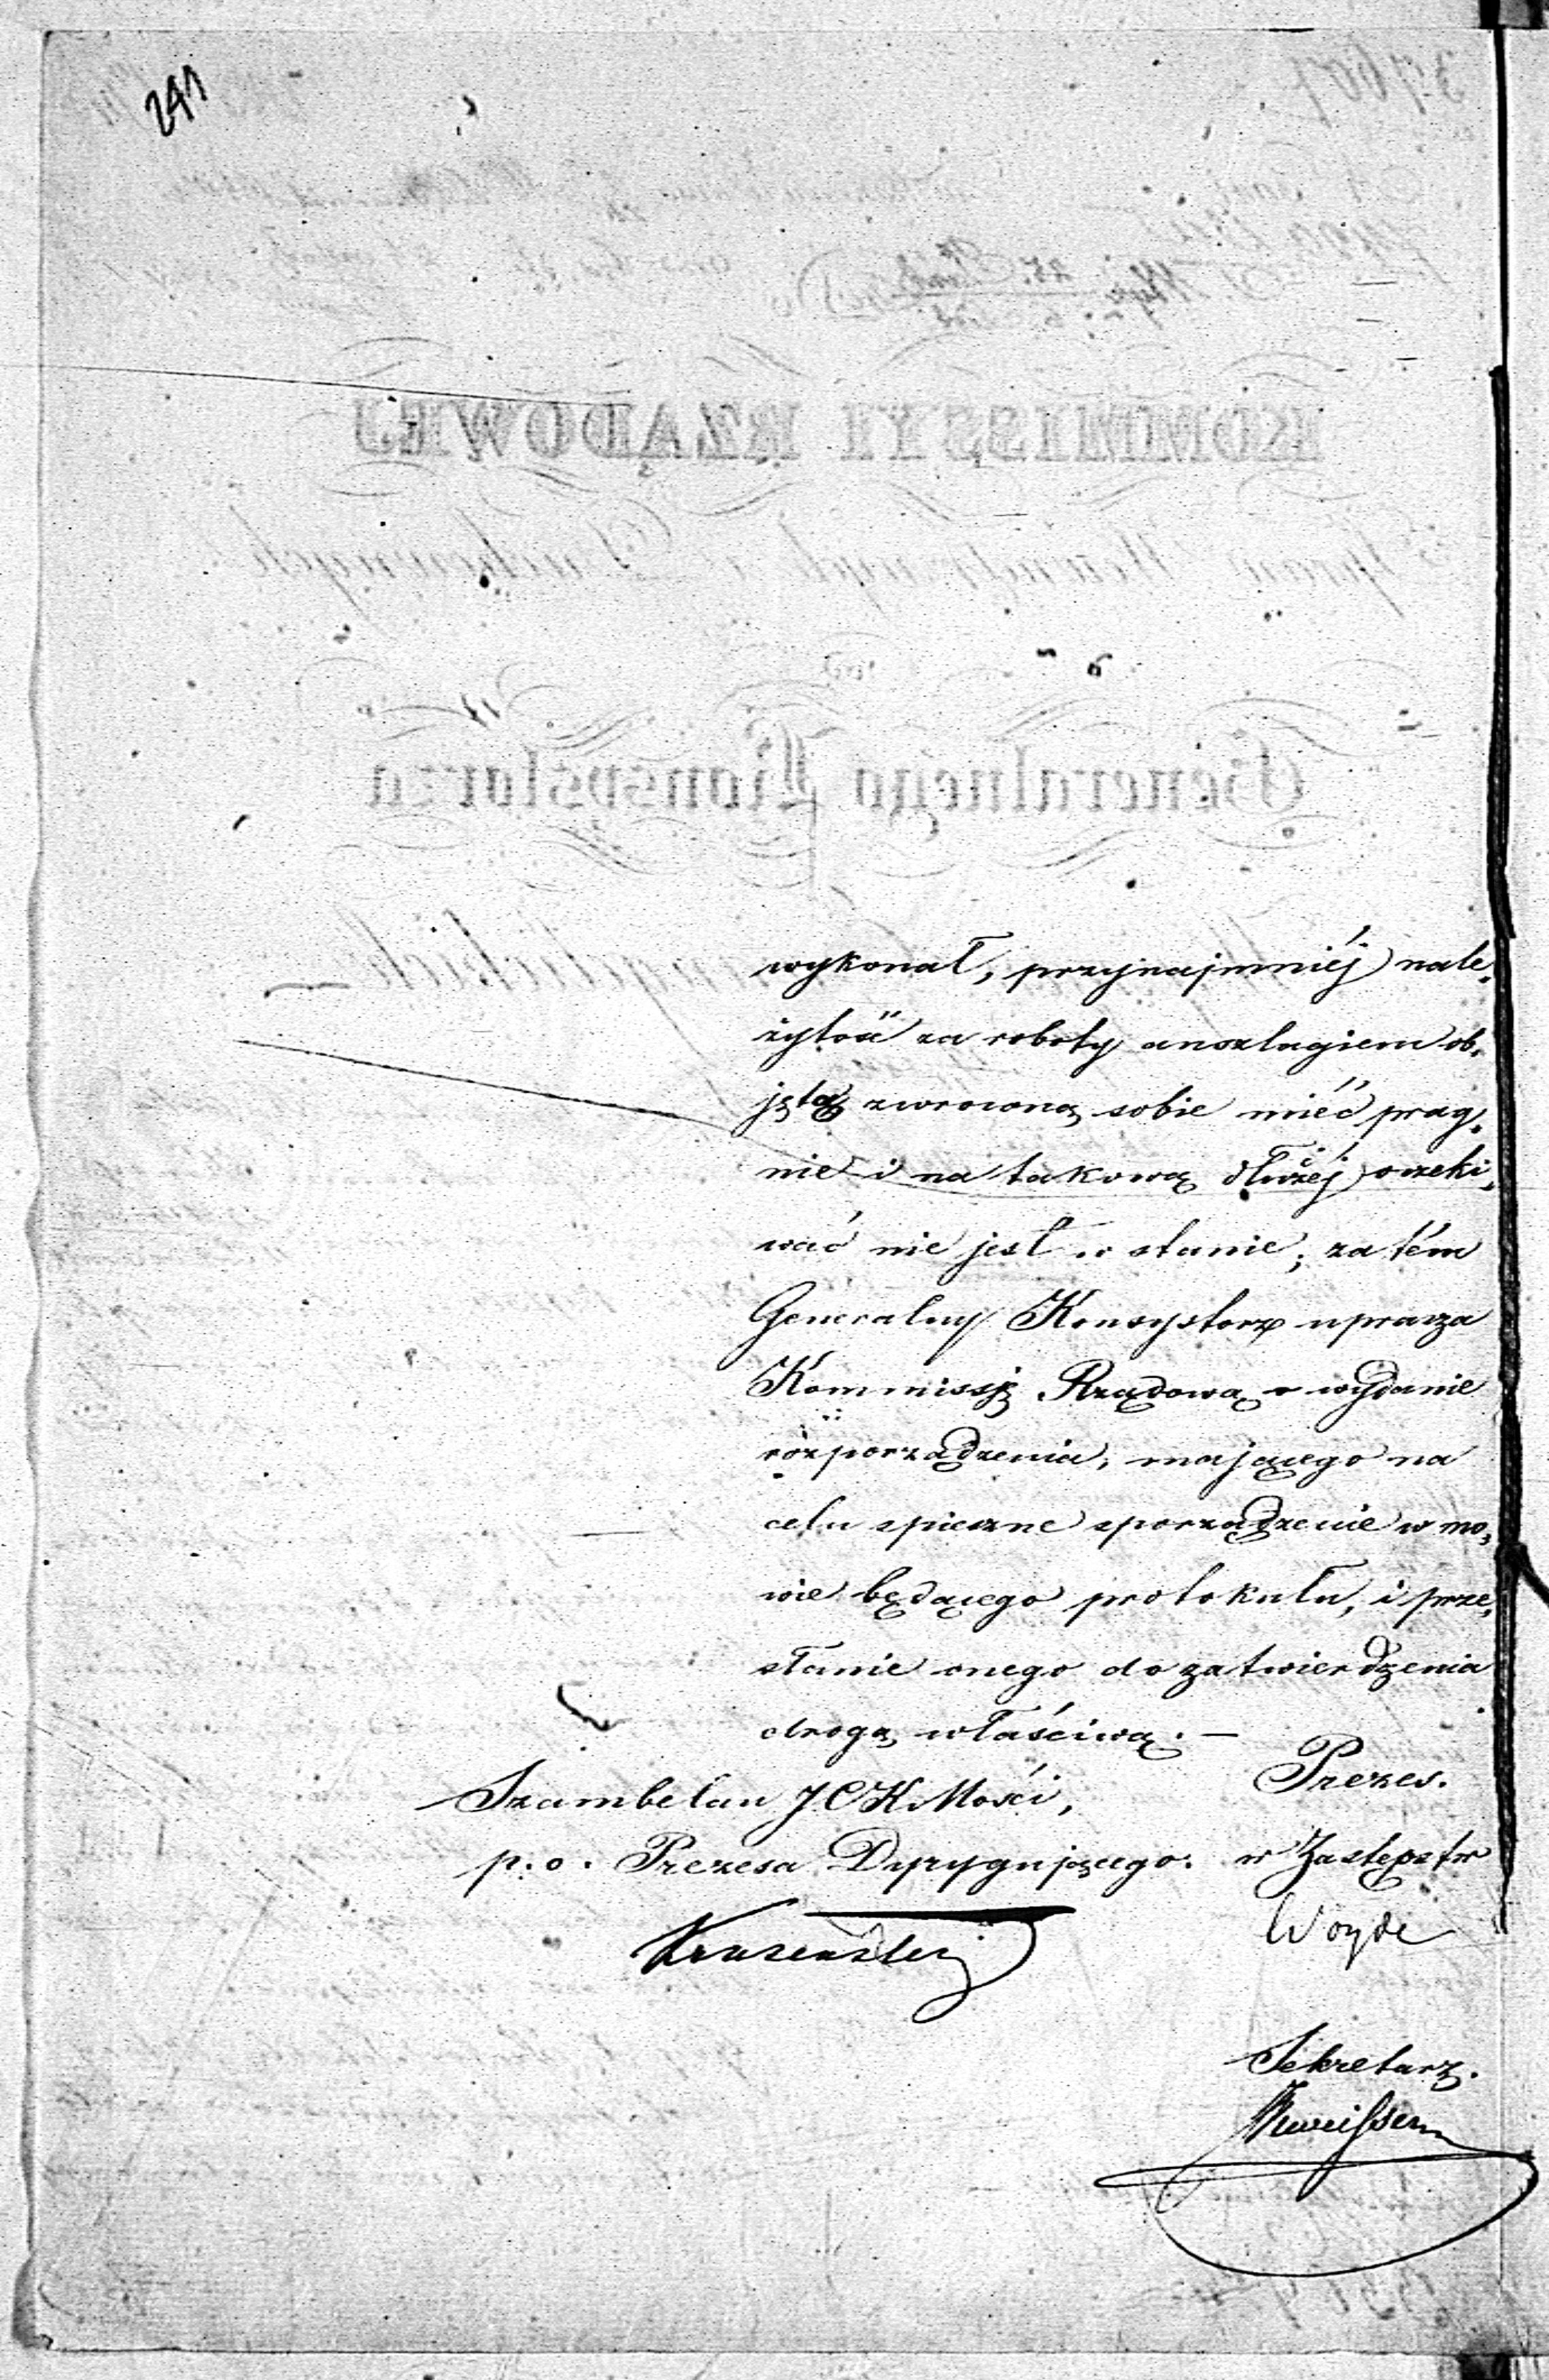 241
wykonał, przynajmniéj nale-
żytość za roboty anszlagiem ob-
jętą zwroconą sobie mieć prag-
nie i na takową dłużéj oczeki-
wać nie jest w stanie; za tém
Generalny Konsystorz uprasza
Kommissję Rządową o wydanie
rozporządzenia, mającego na
celu spieszne sporządzenie w mo-
wie będącego protokułu, i prze-
słanie onego do zatwierdzenia
drogą właściwą. —
Prezes.
Szambelan J.C.K. Mości,
p. o. Prezesa Dyrygującego. w Zastępstw
Woyde
Kruzenstern
Sekretarz.